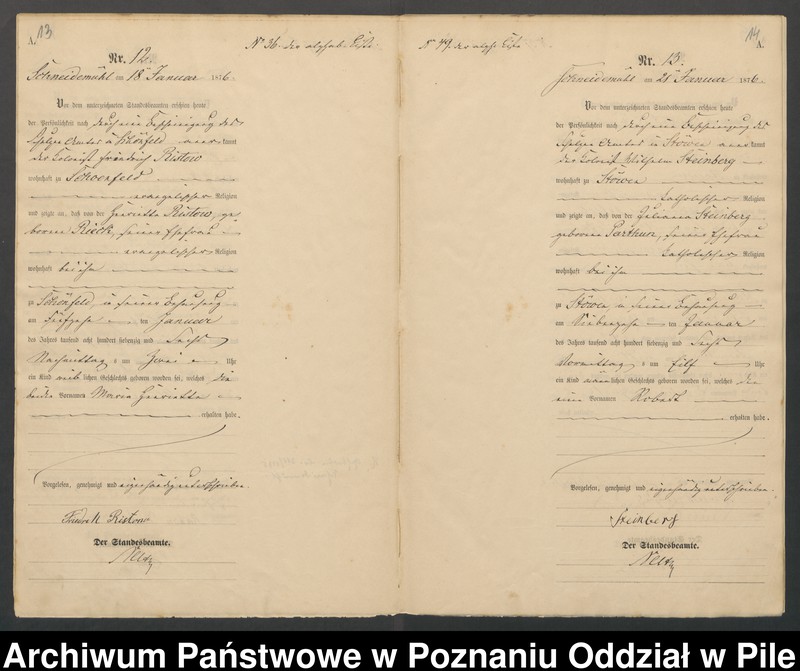 13
A.
Nr. 12.
N° 36. der alphab. Liste
Schneidemühl am 18 Januar 1876.
Vor dem unterzeichneten Standesbeamten erschien heute
der Persönlichkeit nach durch eine Bescheinigung des
Schulzen Amtes zu Schönfeld anerkannt
der Colonist Friedrich Ristow
wohnhaft zu Schoenfeld
evangelischer Religion
und zeigte an, daß von der Henriette Ristow, ge
borenen Rieck, seiner Ehefrau
evangelischer Religion
wohnhaft bei ihm
zu Schönfeld, in seiner Behausung
am fünfzehn ten Januar
des Jahres tausend acht hundert siebenzig und Sechs
Nachmittag s um Zwei Uhr
ein Kind weib lichen Geschlechts geboren worden sei, welches die
beiden Vornamen Maria Henriette
erhalten habe.
Vorgelesen, genehmigt und eigenhändig unterschrieben.
Friedrich Ristow
Der Standesbeamte.
14
A.
N° 49. der alph. Liste
Nr. 13.
Schneidemühl am 21 Januar 1876.
Vor dem unterzeichneten Standesbeamten erschien heute
der Persönlichkeit nach durch eine Bescheinigung des
Schulzen Amtes zu Stöwen anerkannt
der Colonist Wilhelm Steinberg
wohnhaft zu Stöwen
katholischer Religion
und zeigte an, daß von der Juliana Steinberg
geborenen Parthun, seiner Ehefrau
katholischer Religion
wohnhaft bei ihm
zu Stöwen, in seiner Behausung
am Siebenzehn ten Januar
des Jahres tausend acht hundert siebenzig und Sechs
Vormittag s um Eilf Uhr
ein Kind männlichen Geschlechts geboren worden sei, welches den
einen Vornamen Robert
erhalten habe.
Vorgelesen, genehmigt und eigenhändig unterschrieben.
Steinberg
Der Standesbeamte.
Archiwum Państwowe w Poznaniu Oddział w Pile